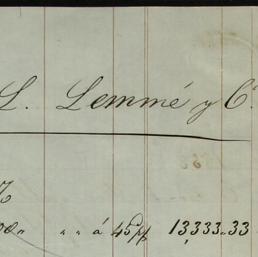 L. Lemmé y Cᵃ
" " á 45 pf 13,333.. 33